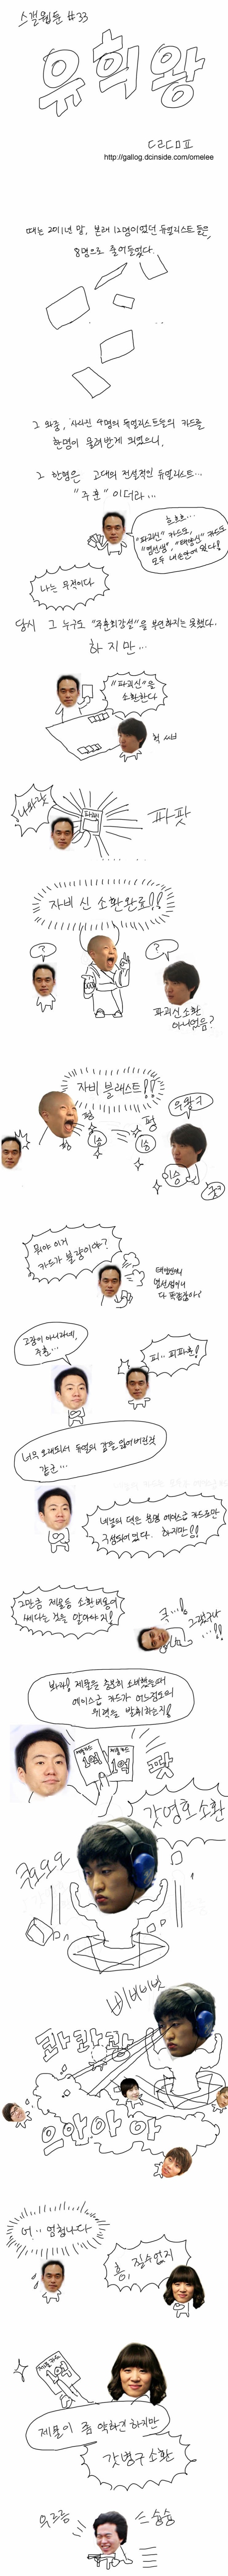 스갤웹툰 #33
유희왕
http://gallog.dcinside.com/omelee
때는 2011년 말, 본래 12명이었던 듀얼리스트들은,
8명으로 줄어들었다.
그 와중, 사라진 4명의 듀얼리스트들의 카드를
한명이 물려받게 되었으니,
그 한명은 고대의 전설적인 듀얼리스트...
"주훈" 이더라...
흐흐흐...
"파괴신" 카드도,
모두 내손안에 있다!
나는 무적이다
당시 그 누구도 "주훈최강설"을 부인하지는 못했다.
하지만...
"파괴신"을
소환한다
나와랏
파괴신
파팟
자비 신 소환완료!!
?
?
파괴신 소환
아니었음?
자비 블래스트!!
펑
펑
1승
1승
1승
우왕ㅋ
굳ㅋ
뭐야 이거
카드가 불량이야?
다 똑같잖아!
고장이 아니라네,
주훈...
피.. 피파훈!
너무 오래되서 듀얼의 감을 잃어버린것
같군...
네놈의 덱은 분명 에이스급 카드로만
구성되어있다. 하지만!!
그만큼 제물등 소환비용이
쎄다는 것을 알아야지!
큭...!
그랬구나
...!!
봐라! 제물을 충분히 소비했을때
에이스급 카드가 어느정도의
위력을 발휘하는지!
1억
1억
팟
갓영호 소환
쿠오오오
콰콰쾅
으아아아
어.. 엄청나다
흥, 질수없지
1억
제물이 좀 약하긴 하지만
갓병구 소환
우르릉
슝슝